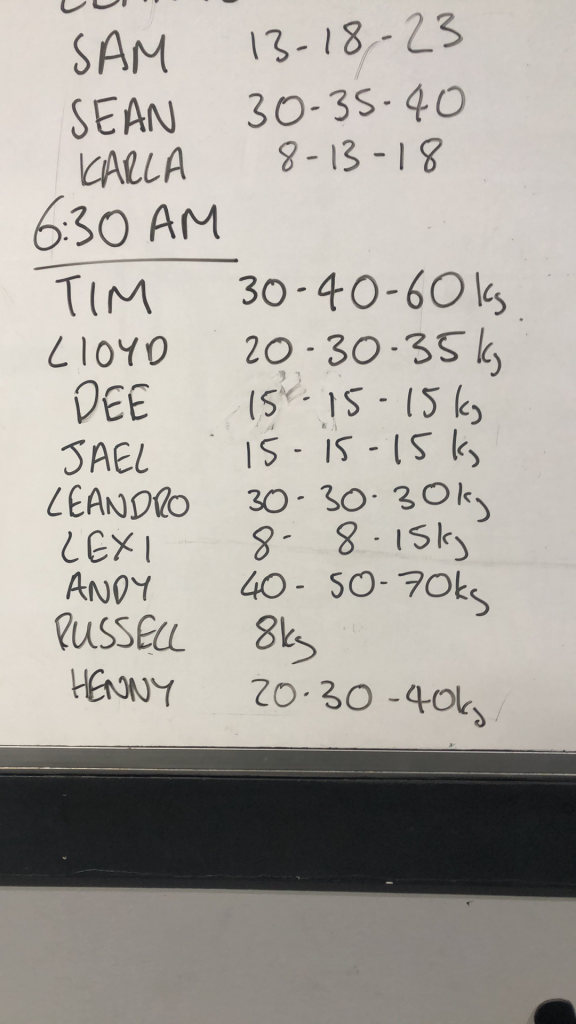 SAM 13-18-23
SEAN 30-35-40
KARLA 8-13-18
6:30 AM
TIM 30-40-60kg
LLOYD 20-30-35kg
DEE 15-15-15kg
JAEL 15-15-15kg
LEANDRO 30-30-30kg
LEXI 8-8-15kg
ANDY 40-50-70kg
RUSSELL 8kg
HENNY 20-30-40kg